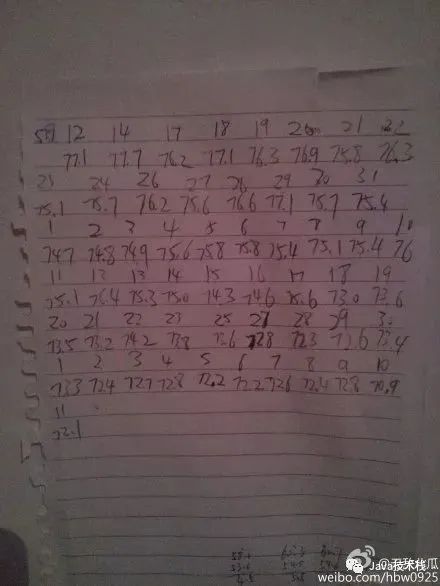 12 14 17 18 19 20 21 22
77.1 77.7 76.2 77.1 76.3 76.9 75.8 76.3
23 24 26 27 28 29 30 31
75.1 75.7 76.2 75.6 76.6 77.1 75.7 75.4
1 2 3 4 5 6 7 8 9 10
74.7 74.8 74.9 75.6 75.8 75.8 75.4 75.1 75.4 76
11 12 13 14 15 16 17 18 19
75.1 76.4 75.3 75.0 74.3 74.6 75.6 73.0 73.6
20 21 22 23 25 27 28 29 30
73.5 73.2 74.2 73.8 73.6 72.8 72.3 73.6
1 2 3 4 5 6 7 8 9 10
73.3 72.4 72.7 72.8 72.2 72.2 72.6 72.4 72.8 70.9
11
72.1
Java技术栈
weibo.com/hbw0925